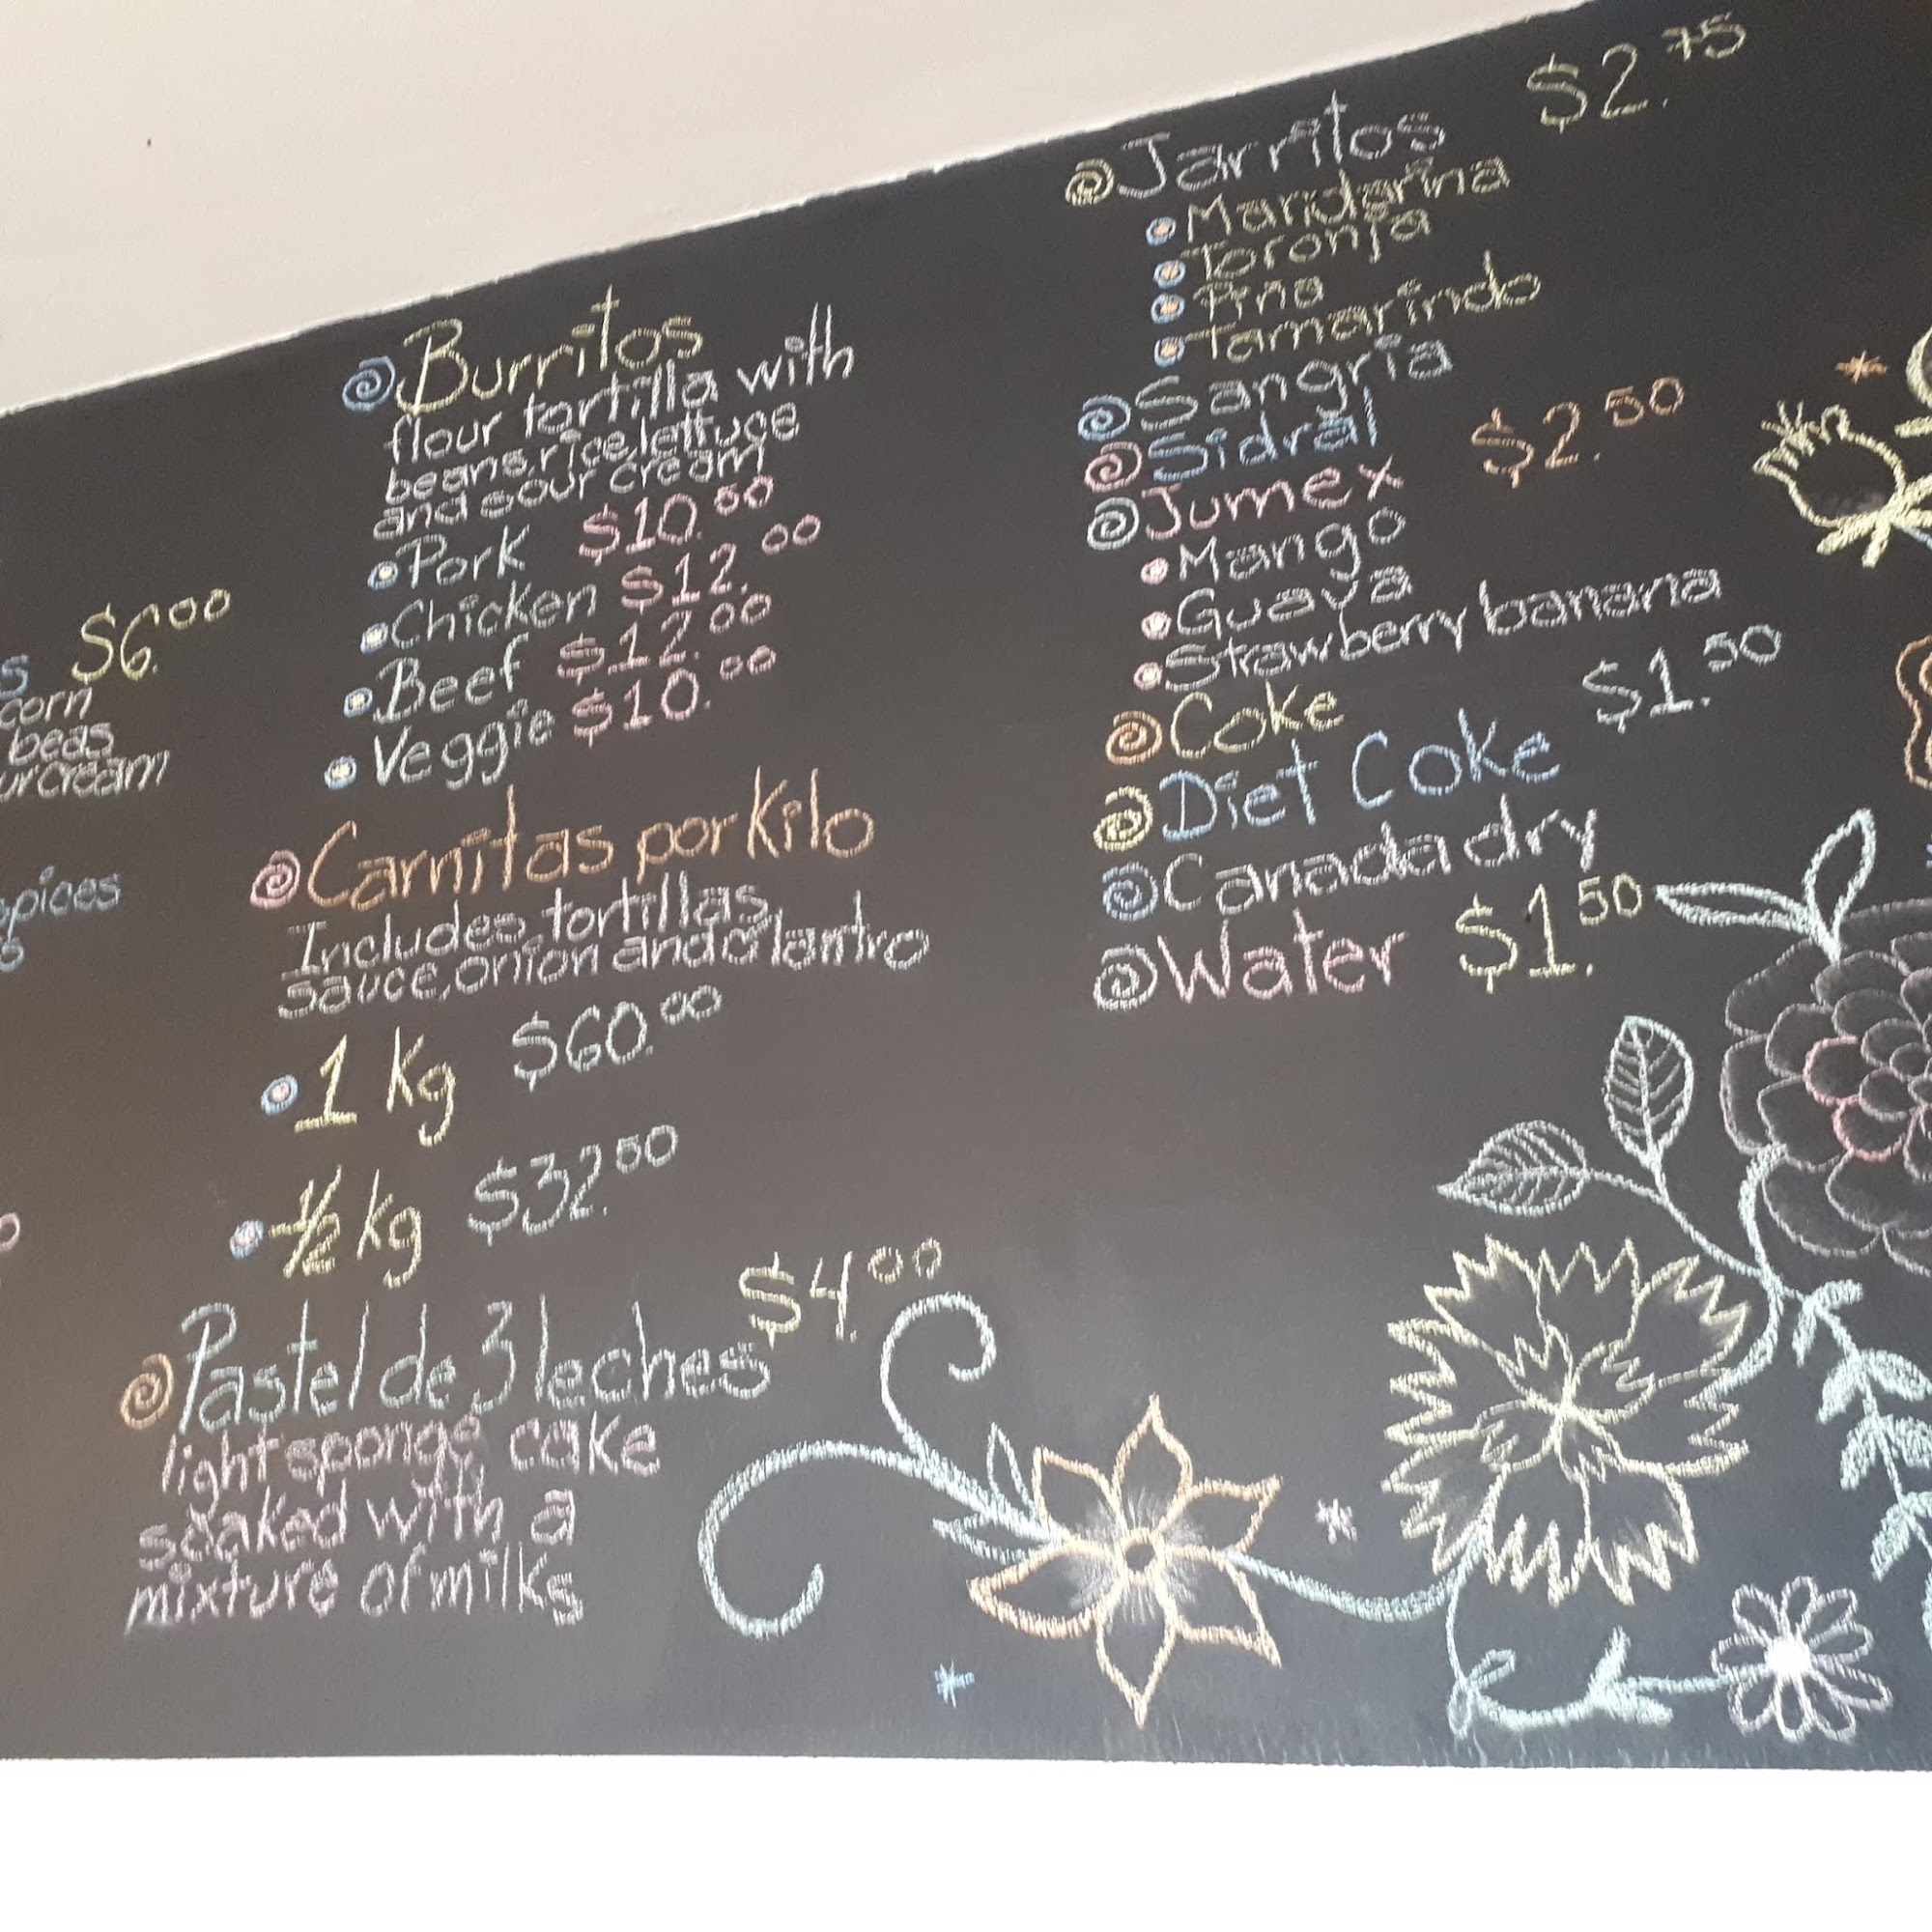 $6.00
corn
beas
ur cream
pices
Burritos
flour tortilla with
beans, rice, lettuce
and sour cream
Pork $10.50
Chicken $12.00
Beef $12.00
Veggie $10.00
Carnitas por Kilo
Includes tortillas
sauce, onion and cilantro
1 Kg $60.00
1/2 kg $32.50
Pastel de 3 leches $4.00
light sponge cake
soaked with a
mixture of milks
Jarritos $2.75
Mandarina
Toronja
Piña
Tamarindo
Sangria
Sidral
Jumex $2.50
Mango
Guava
Strawberry banana
Coke
Diet Coke $1.50
Canada dry
Water $1.50